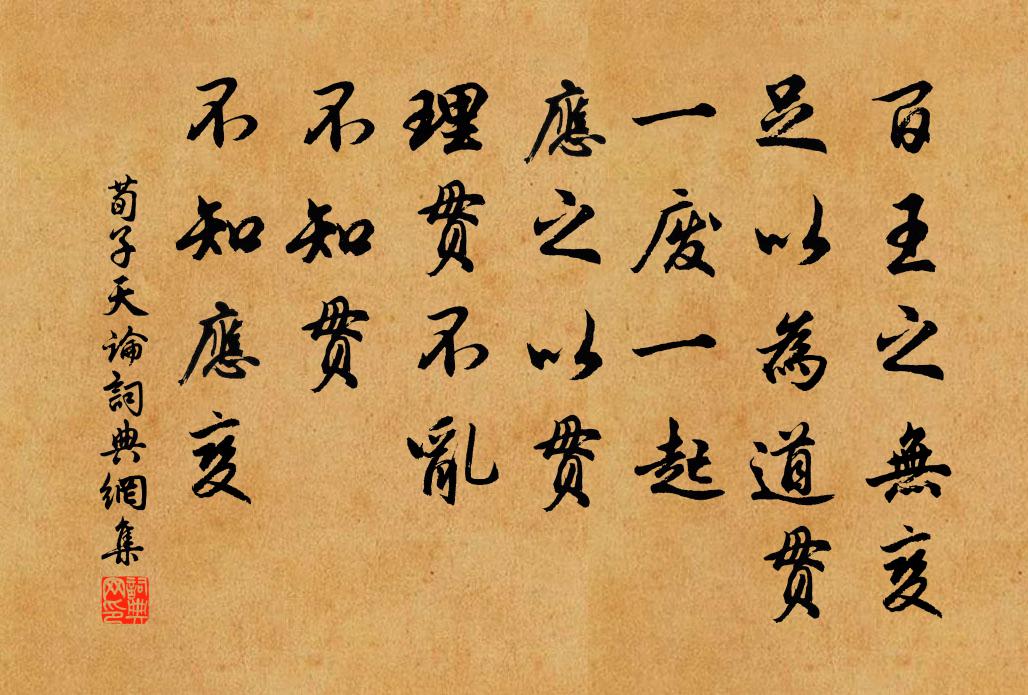 百王之無变
足以為道貫
一廢一起
應之以貫
理貫不亂
不知貫
不知應变
荀子天論詞典網集
詞典
网印